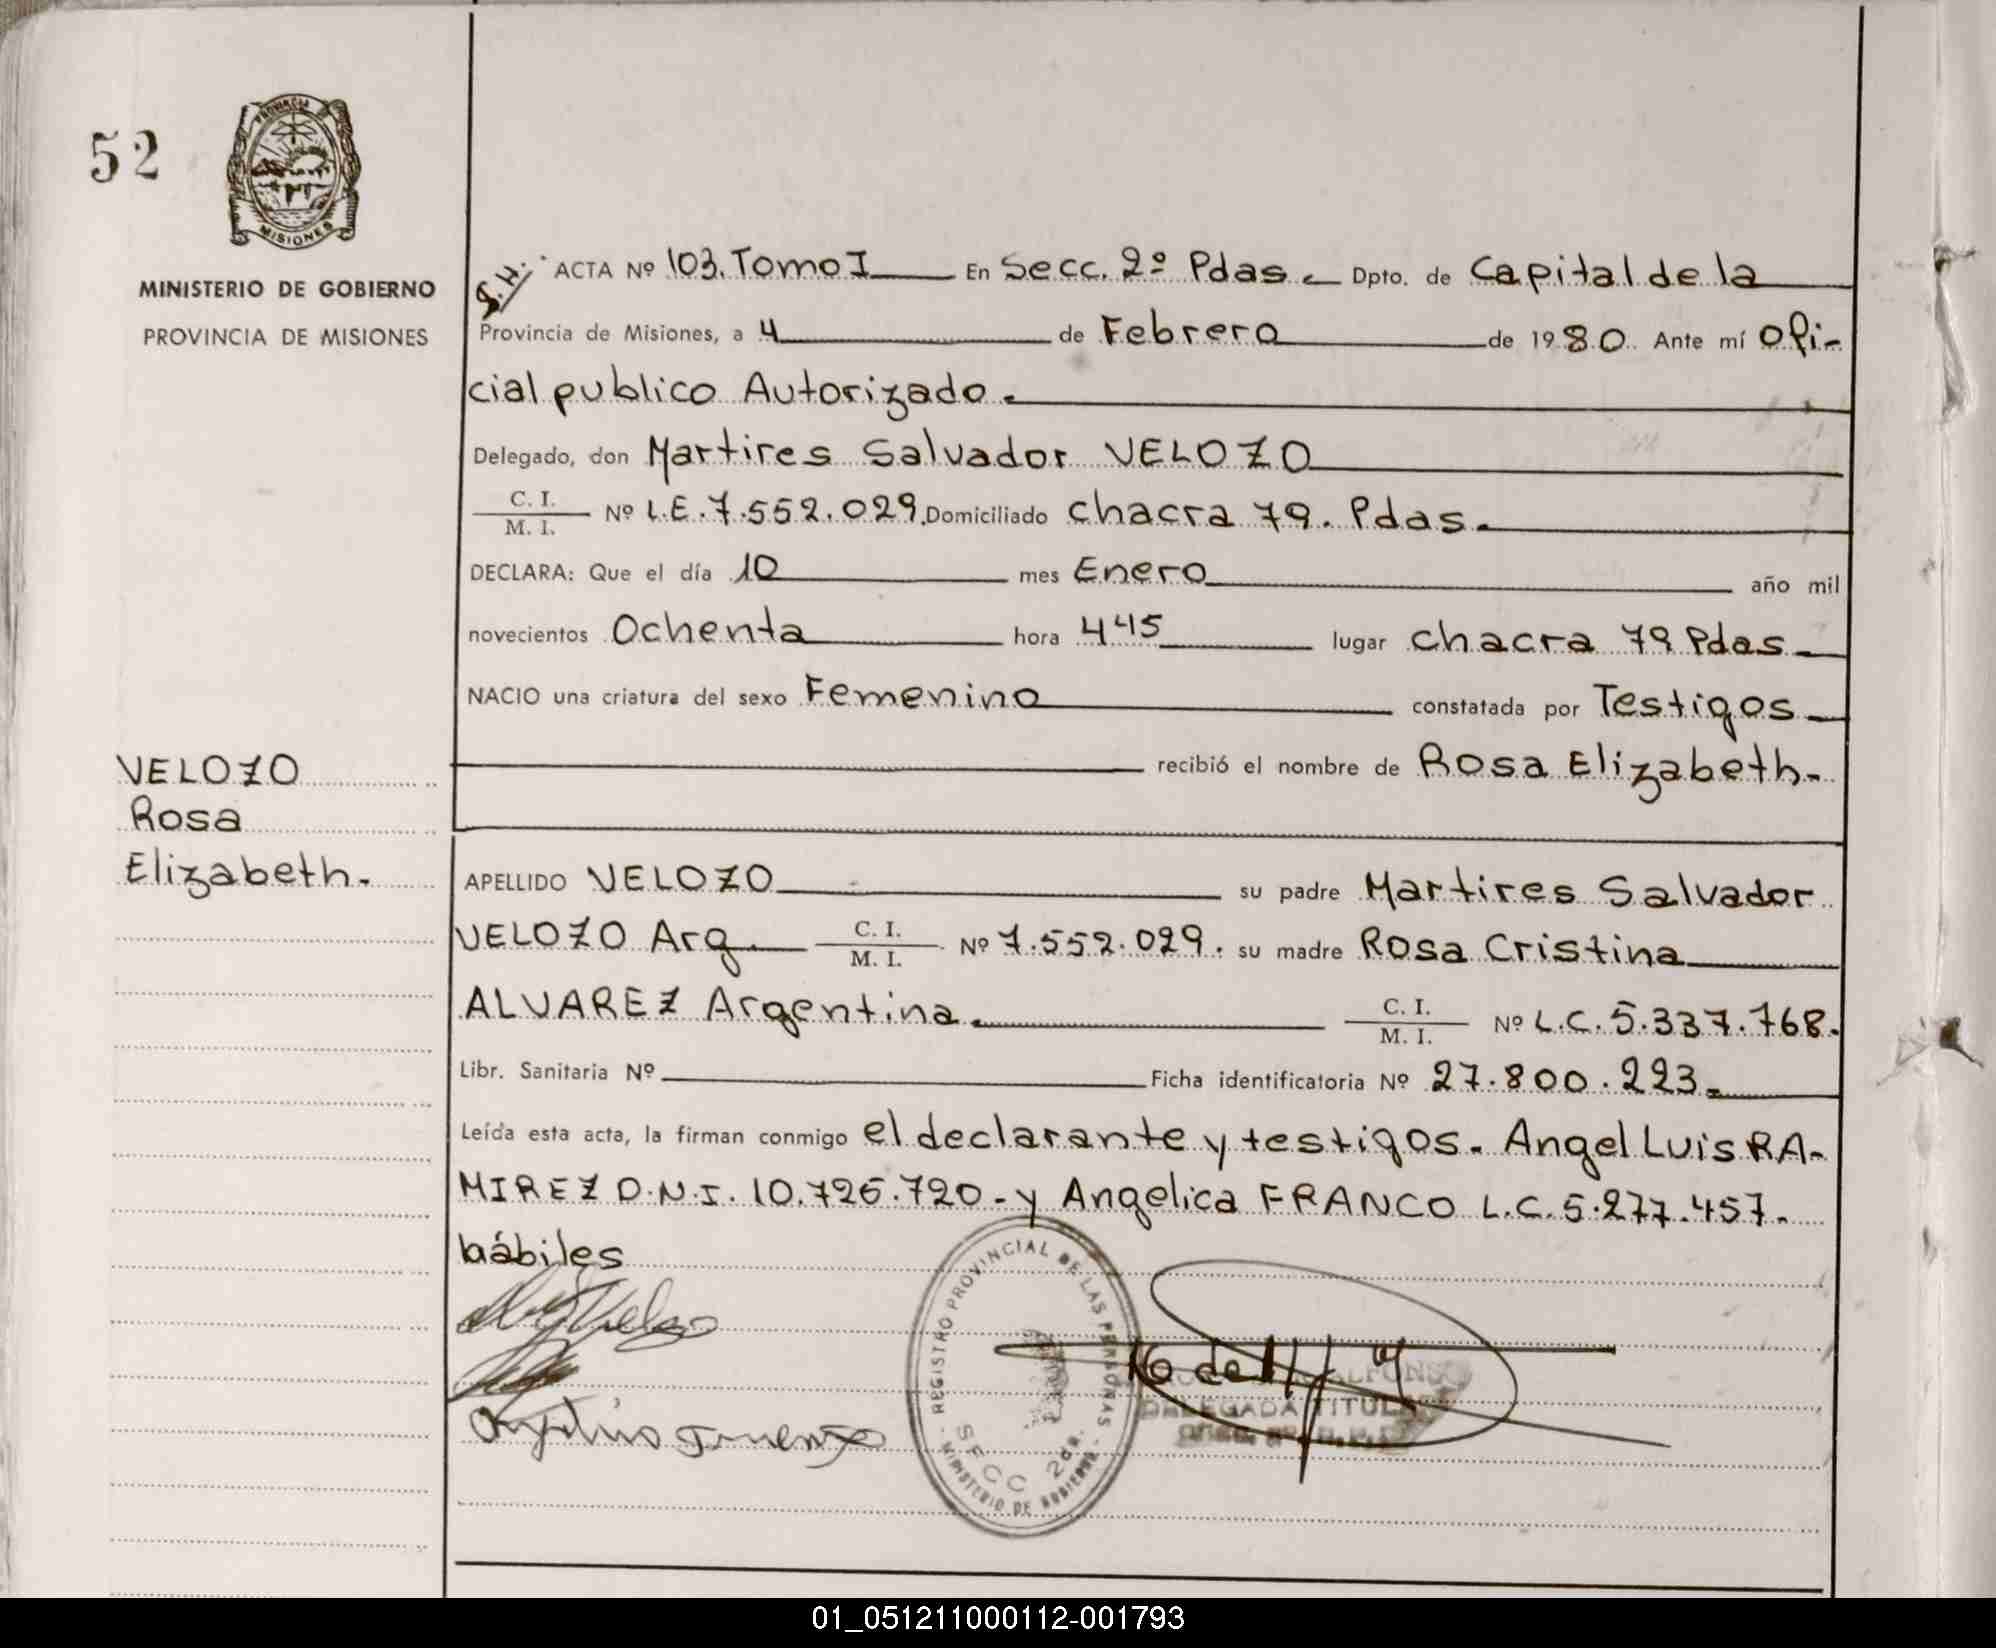 52
PROVINCIA DE
MISIONES
MINISTERIO DE GOBIERNO
PROVINCIA DE MISIONES
ACTA Nº 103. Tomo I En Secc. 2º Pdas. Dpto. de Capital de la
Provincia de Misiones, a 4 de Febrero de 1980. Ante mí Ofi-
cial publico Autorizado.
Delegado, don Martires Salvador VELOZO
C. I.
M. I. Nº L.E. 7.552.029. Domiciliado chacra 79. Pdas.
DECLARA: Que el día 10 mes Enero año mil
novecientos Ochenta hora 4 45 lugar chacra 79 Pdas.
NACIO una criatura del sexo Femenino constatada por Testigos
recibió el nombre de Rosa Elizabeth.
VELOZO
Rosa
Elizabeth.
APELLIDO VELOZO su padre Martires Salvador
VELOZO Arg. C. I. M. I. Nº 7.552.029. su madre Rosa Cristina
ALVAREZ Argentina. C. I. M. I. Nº L.C. 5.337.768.
Libr. Sanitaria Nº Ficha identificatoria Nº 27.800.223.
Leída esta acta, la firman conmigo el declarante y testigos. Angel Luis RA-
MIREZ D.N.I. 10.726.720 - y Angelica FRANCO L.C. 5.277.457.
hábiles
REGISTRO PROVINCIAL DE LAS PERSONAS
SECC 2da.
MINISTERIO DE GOBIERNO
DELEGADA TITULAR
01_051211000112-001793